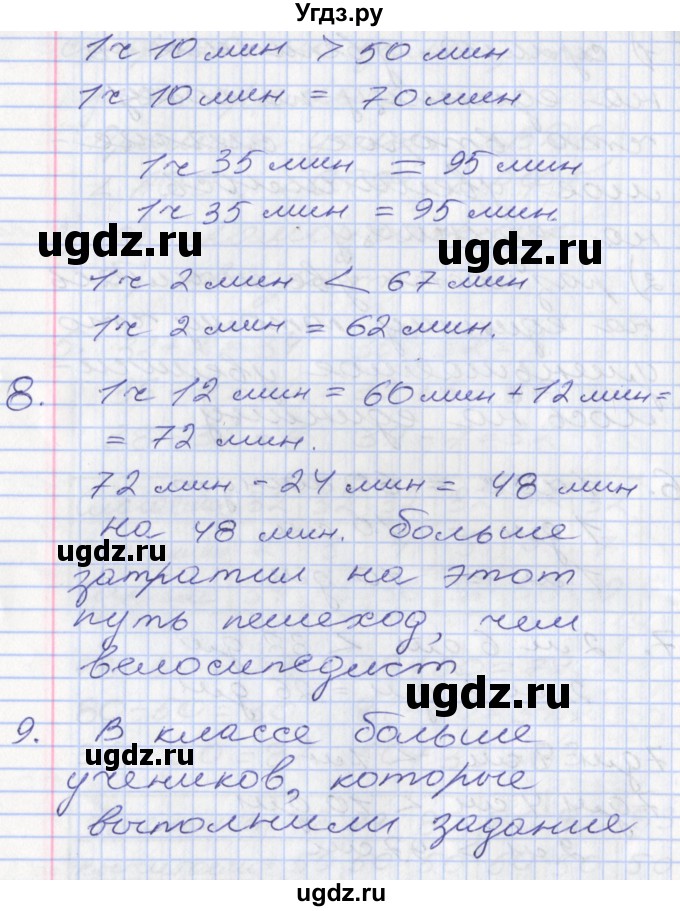 Угдз.ру
1ч 10 мин > 50 мин
1ч 10 мин = 70 мин
1ч 35 мин = 95 мин
1ч 35 мин = 95 мин.
ugdz.ru ugdz.ru
1ч 2 мин < 67 мин
1ч 2 мин = 62 мин.
8. 1ч 12 мин = 60 мин + 12 мин =
= 72 мин.
72 мин - 24 мин = 48 мин
на 48 мин. больше
ugdz.ru
затратил на этот
путь пешеход, чем
велосипедист
ugdz.ru
9. В классе больше
учеников, которые
выполнили задание.
ugdz.ru